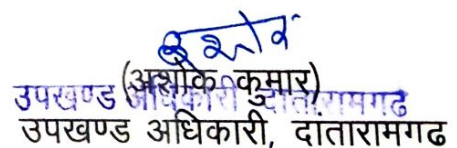 अशोक
(अशोक कुमार)
उपखण्ड अधिकारी दातारामगढ
उपखण्ड अधिकारी, दातारामगढ